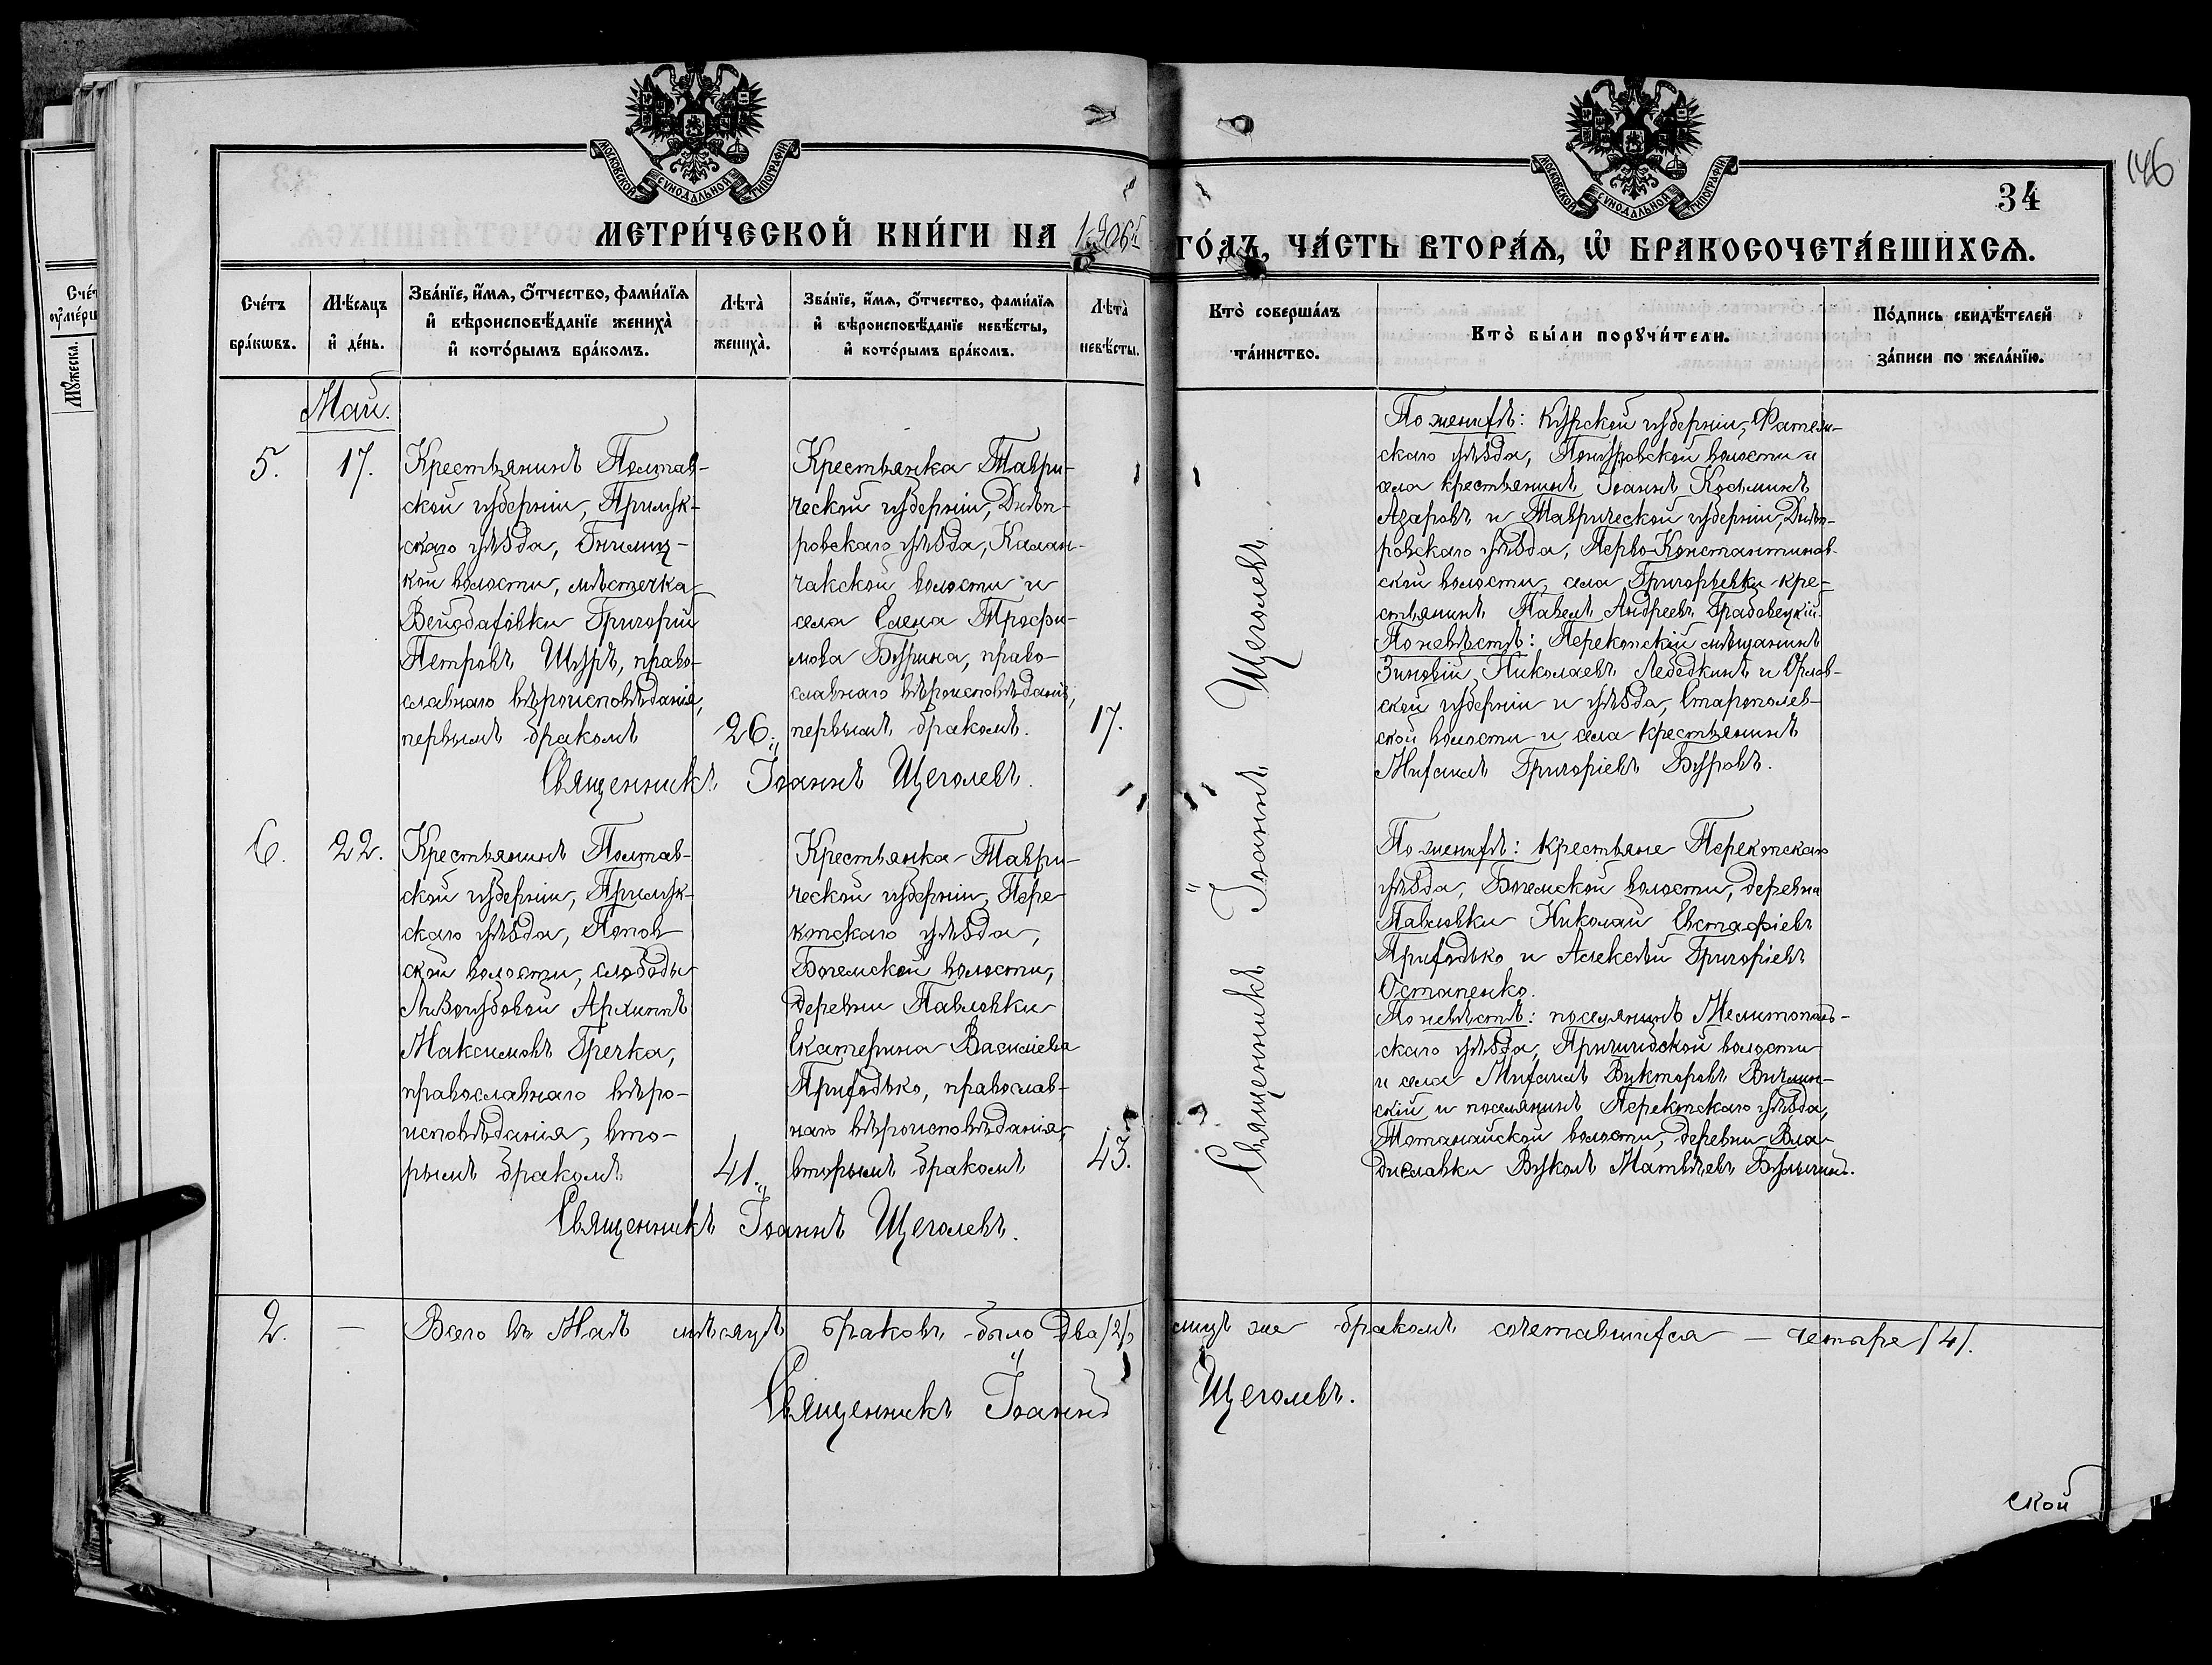 МОСКОВСКОЙ СѴНОДАЛЬНОЙ ТИПОГРАФІИ
МОСКОВСКОЙ СѴНОДАЛЬНОЙ ТИПОГРАФІИ
146
34
МЕТРИ́ЧЕСКОЙ КНИ́ГИ НА 1906й ГО́ДЪ, ЧА́СТЬ ВТОРА́Ѧ, Ѡ҆ БРАКОСОЧЕТА́ВШИХСѦ.
Сче́тъ бра́кѡвъ.
Мѣ́сѧцъ и҆ де́нь.
Зва́нїе, и҆́мѧ, ѻ҆́тчество, фами́лїѧ
и҆ вѣроисповѣ́данїе жениха̀
и҆ кото́рымъ бра́комъ.
Лѣта̀ жениха̀.
Зва́нїе, и҆́мѧ, ѻ҆́тчество, фами́лїѧ
и҆ вѣроисповѣ́данїе невѣ́сты,
и҆ кото́рымъ бра́комъ.
Лѣта̀ невѣ́сты.
Кто̀ соверша́лъ та́инство.
Кто̀ бы́ли порꙋчи́тели.
По́дпись свидѣ́телей за́писи по жела́нїю.
Май.
5.
17.
Крестьянинъ Полтав-
ской губерніи, Прилук-
скаго уѣзда,
кой волости, мѣстечка
Григорій
Петровъ Щуръ, право-
славнаго вѣроисповѣданія,
первымъ бракомъ
26.
Крестьянка Таври-
ческой губерніи, Днѣп-
ровскаго уѣзда, Калан-
чакской волости и
села Елена Трофи-
мова Бурина, право-
славнаго вѣроисповѣданія,
первымъ бракомъ.
17.
Священникъ Іоаннъ Щеголевъ.
По женихѣ: Курской губерніи, Фатеж-
скаго уѣзда, волости и
села крестьянинъ Іоаннъ Косьминъ
Азаровъ и Таврической губерніи, Днѣп-
ровскаго уѣзда, Перво-Константинов-
ской волости, села Григорьевки кре-
стьянинъ Павелъ Андреевъ Грабовецкій.
По невѣстѣ: Перекопскій мѣщанинъ
Зиновій Николаевъ Лебедкинъ и Орлов-
ской губерніи и уѣзда,
ской волости и села крестьянинъ
Михаилъ Григоріевъ Буровъ.
6.
22.
Крестьянинъ Полтав-
ской губерніи, Прилук-
скаго уѣзда,
ской волости, слободы
Лизогубовой Архиппъ
Максимовъ Гречка,
православнаго вѣро-
исповѣданія, вто-
рымъ бракомъ
41.
Крестьянка Таври-
ческой губерніи, Пере-
копскаго уѣзда,
Богемской волости,
деревни Павловки
Екатерина Василіева
Приходько, православ-
наго вѣроисповѣданія,
вторымъ бракомъ
43.
Священникъ Іоаннъ Щеголевъ.
По женихѣ: крестьяне Перекопскаго
уѣзда, Богемской волости, деревни
Павловки Николай Евстафіевъ
Приходько и Алексѣй Григоріевъ
Остапенко.
По невѣстѣ: поселянинъ Мелитополь-
скаго уѣзда, Пришибской волости
и села Михаилъ Викторовъ
и поселянинъ Перекопскаго уѣзда,
волости, деревни Вла-
диславки Вуколъ Матвѣевъ
Священникъ Іоаннъ Щеголевъ.
2.
—
Всего въ Маѣ мѣсяцѣ браковъ было два /2/, лицъ же бракомъ сочетавшихся — четыре /4/.
Священникъ Іоаннъ Щеголевъ.
ской